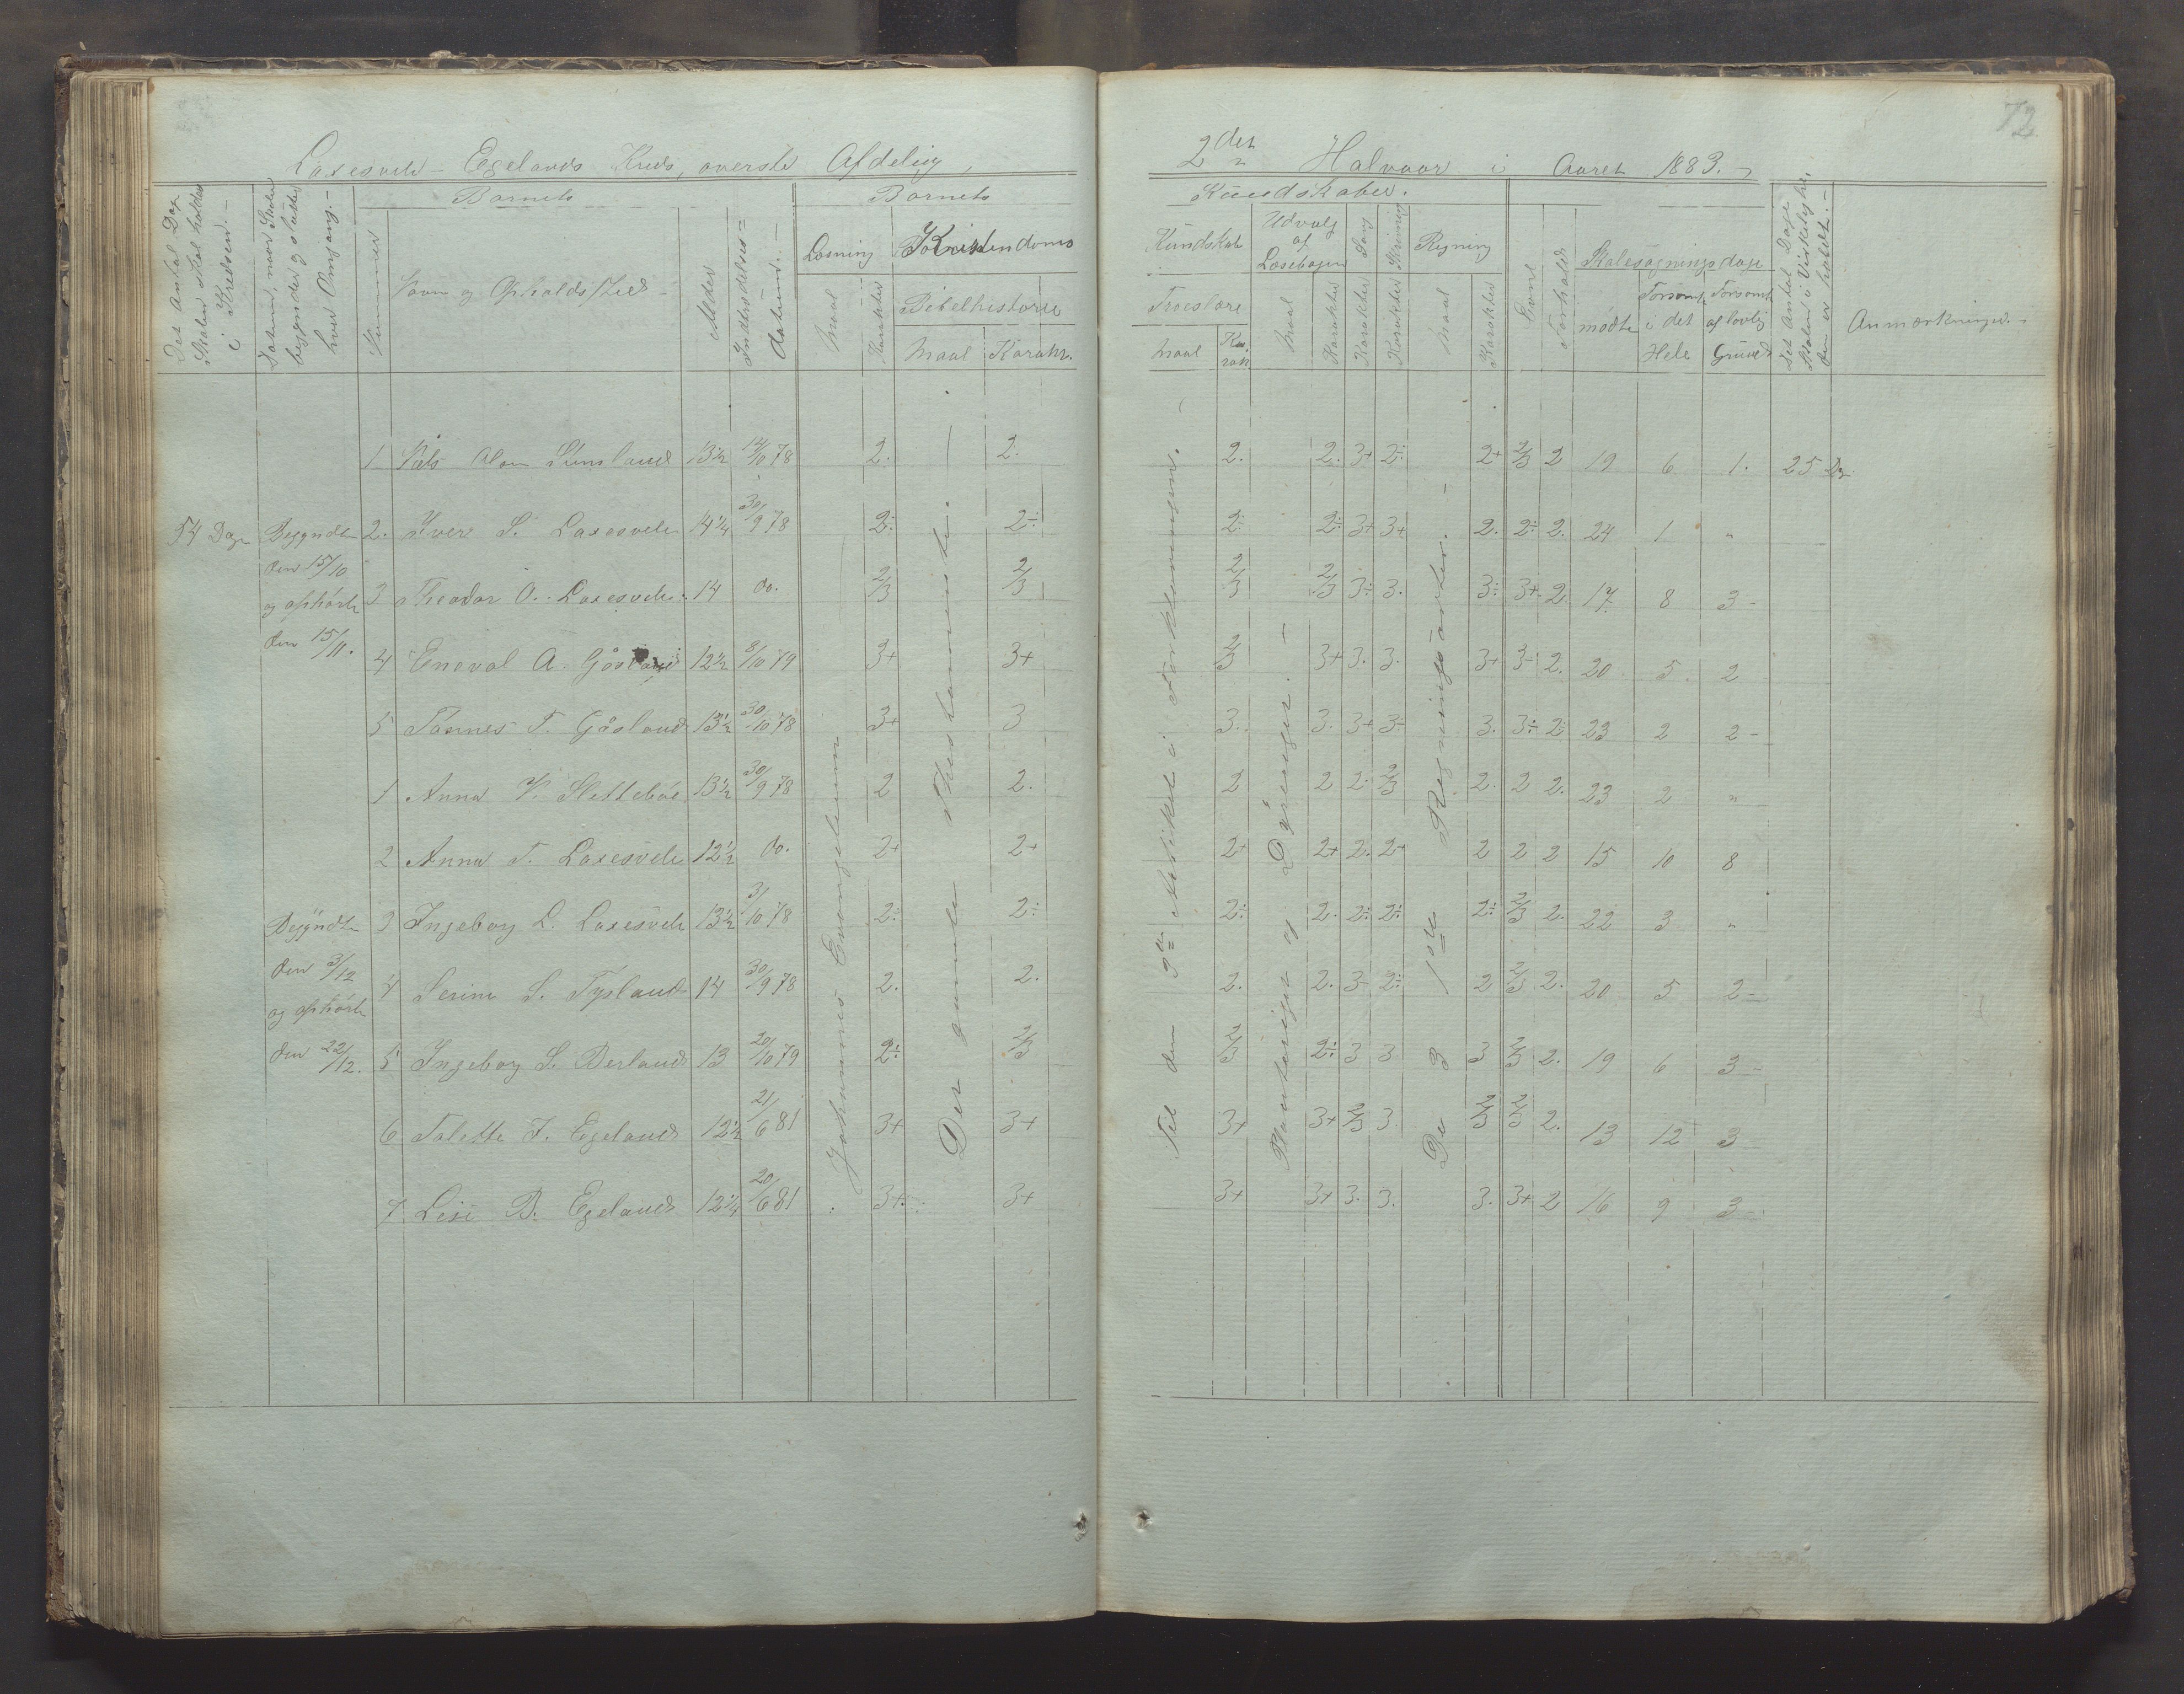 72
Laxesvele - Egelands Kreds, øverste Afdeling,
2den Halvaar i Aaret 1883.
Det Antal Dage Skolen skal holdes i Kredsen.
Datum, naar Skolen begynder og slutter hver Omgang.
Nummer
Barnets
Navn og Opholdssted
Alder
Indtrædelses-datum.
Barnets
Læsning
Maal
Karakter
Kristendoms
Bibelhistorie
Maal
Karakt.
Kundskaber.
Kundskab i
Troeslære
Maal
Karakt.
Udvalg af Læsebogen
Maal
Karakter
Sang
Karakter
Skrivning
Karakter
Regning
Maal
Karakter
Evne
Forhold
Skolesøgningsdage
mødte
Forsømt i det Hele
Forsømt af lovlig Grund
Det Antal Dage Skolen i Virkeligh. den er holdt.
Anmærkninger.
1 Alom Sunsland 13½ 14/10 78 2. 2. 2. 2. 3+ 2÷ 2+ 2/3 2 19 6 1. 25 Dg
54 Dage Begyndte 2. Iver S. Laxesvele 14¼ 30/9 78 2÷ 2÷ 2÷ 2÷ 3+ 3+ 2. 2÷ 2. 24 1 "
den 15/10
og ophørte 3 Theodor O. Laxesvele 14 do. 2/3 2/3 2/3 2/3 3÷ 3. 3÷ 3+ 2. 17 8 3
den 15/11. 4 Enevald A. Gåsland 12½ 8/10 79 3+ 3+ 2/3 3+ 3. 3. 3+ 3÷ 2. 20 5 2
5 Tønnes T. Gåsland 13½ 30/10 78 3+ 3 3. 3. 3+ 3÷ 3. 3÷ 2÷ 23 2 2
1 Anna V. Slettebøe 13½ 30/9 78 2 2. 2 2 2. 2/3 2. 2 2. 23 2 "
2 Anna T. Laxesvele 12½ do. 2+ 2+ 2+ 2+ 2. 2+ 2 2 2 15 10 8
Begyndte 3 Ingeborg L. Laxesvele 13½ 3/10 78 2÷ 2÷ 2÷ 2. 2÷ 2÷ 2÷ 2/3 2. 22 3 "
den 3/12
og ophørte 4 Serine S. Tysland 14 30/9 78 2. 2. 2. 2. 3÷ 2÷ 2 2/3 2. 20 5 2
den 22/12. 5 Ingeborg S. Berland 13 20/10 79 2÷ 2/3 2/3 2÷ 3 3 3 2/3 2. 19 6 3
6 Talette J. Egeland 12½ 21/6 81 3+ 3+ 3+ 3+ 2/3 3. 2/3 2/3 2. 13 12 3
7 Lise B. Egeland 12¼ 20/6 81 3+ 3+ 3+ 3+ 3. 3. 3. 3+ 2 16 9 3
Johannes Evangelium
Det gamle Thestamente.
Til den 3die Artikel i Forklaringen.
Planteriget og Dyreriget.
De 3 1ste Regningsarter.